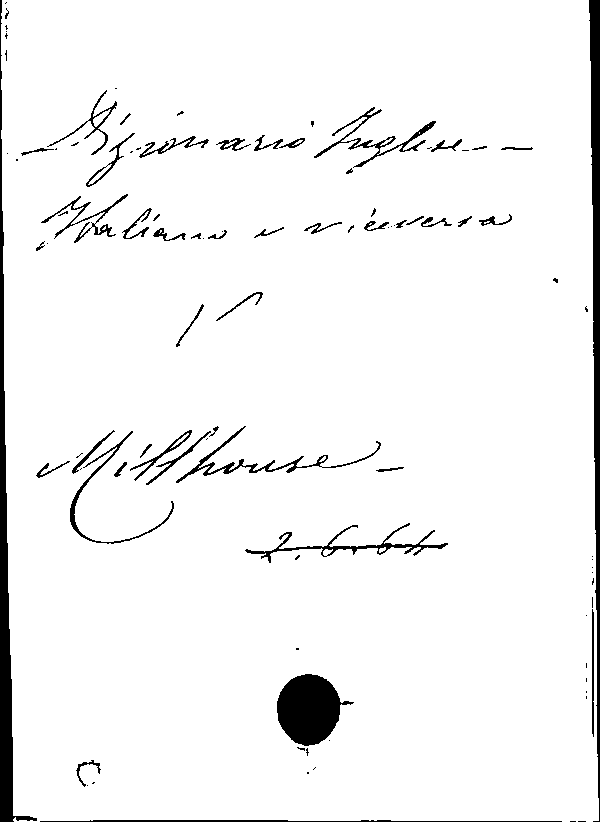 Dizionario Inglese -
Italiano e viceversa
Millhouse -
2. 6. 64